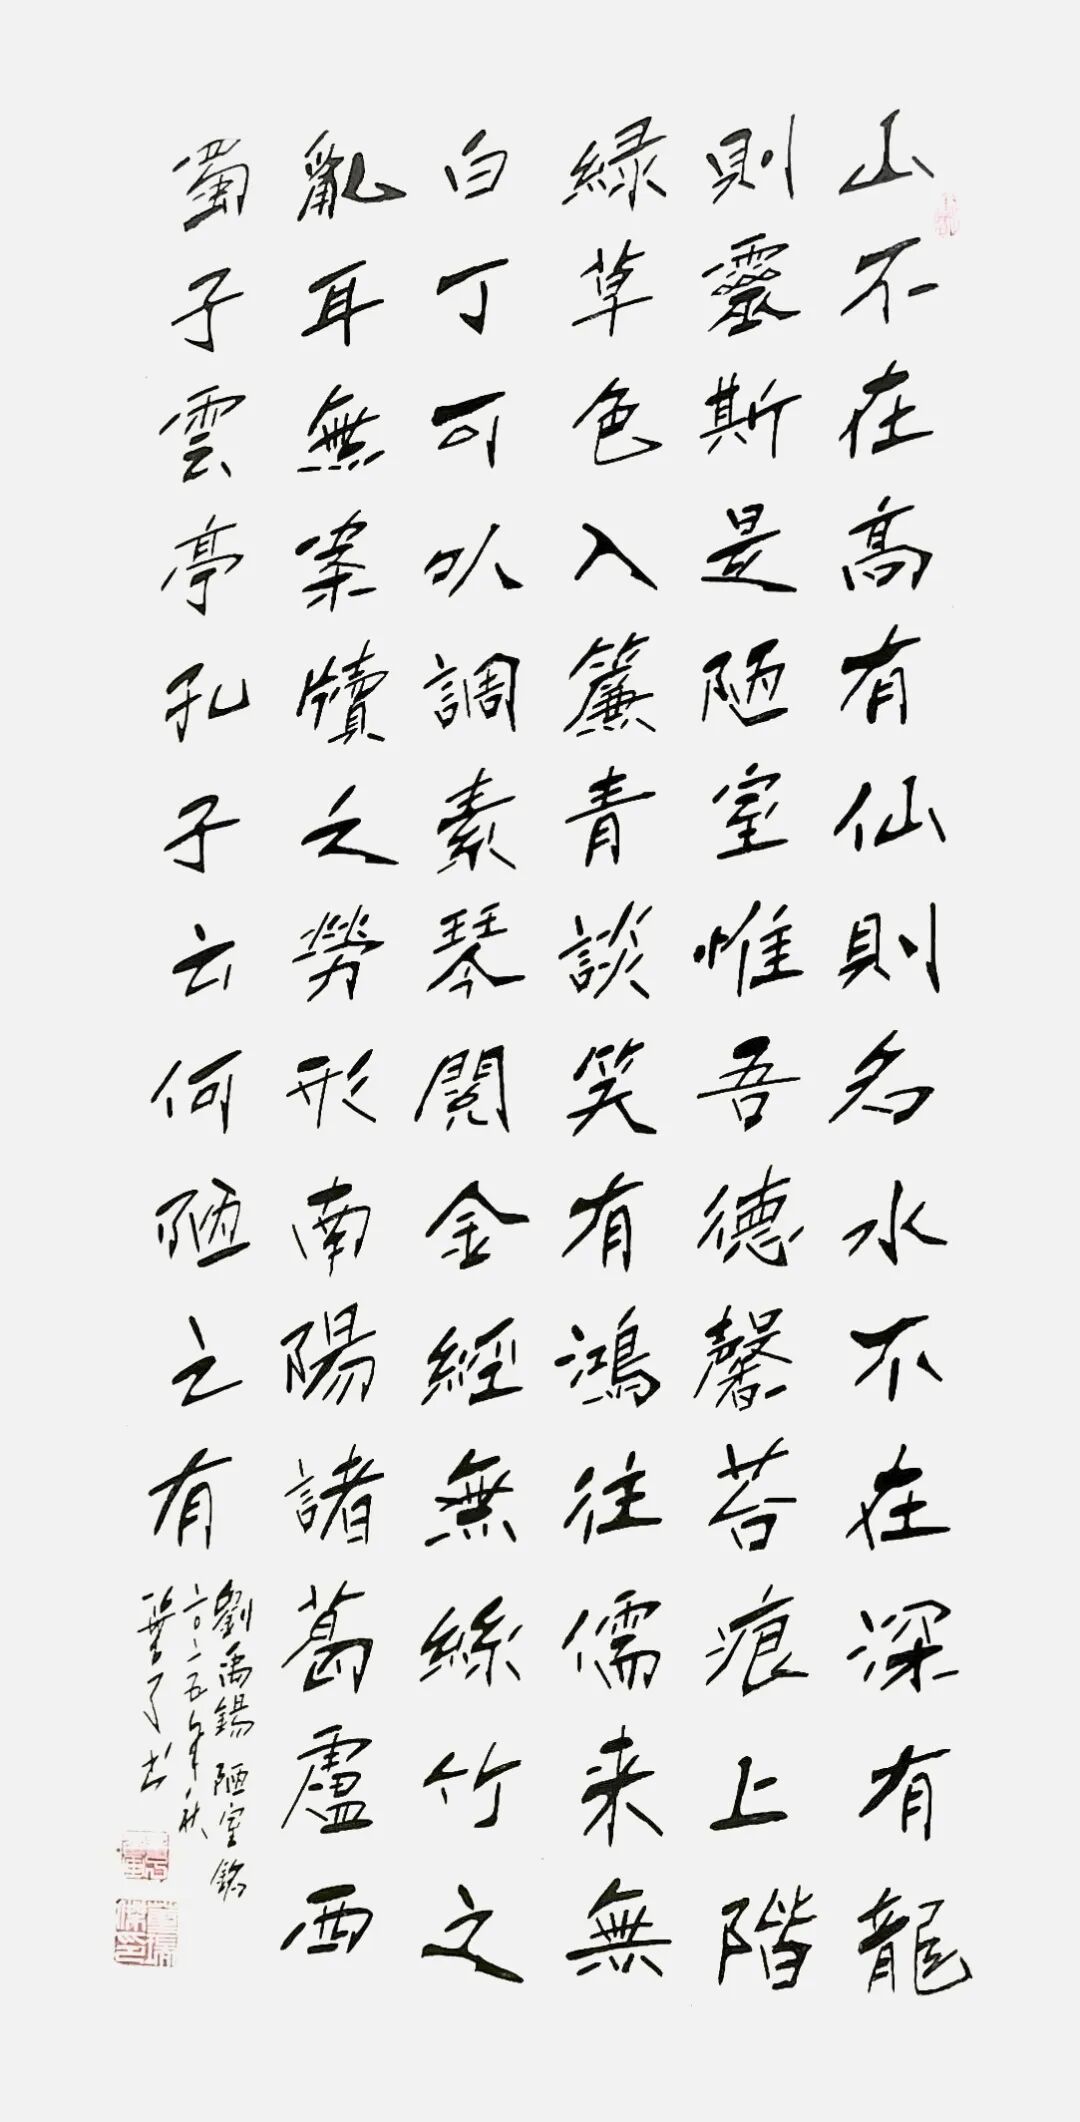 山不在高有仙則名水不在深有龍
則靈斯是陋室惟吾德馨苔痕上階
緑草色入簾青談笑有鴻往儒来無
白丁可以調素琴閱金經無絲竹之
亂耳無案牘之勞形南陽諸葛盧西
蜀子雲亭孔子云何陋之有
劉禹錫陋室銘
二〇二五年秋
书